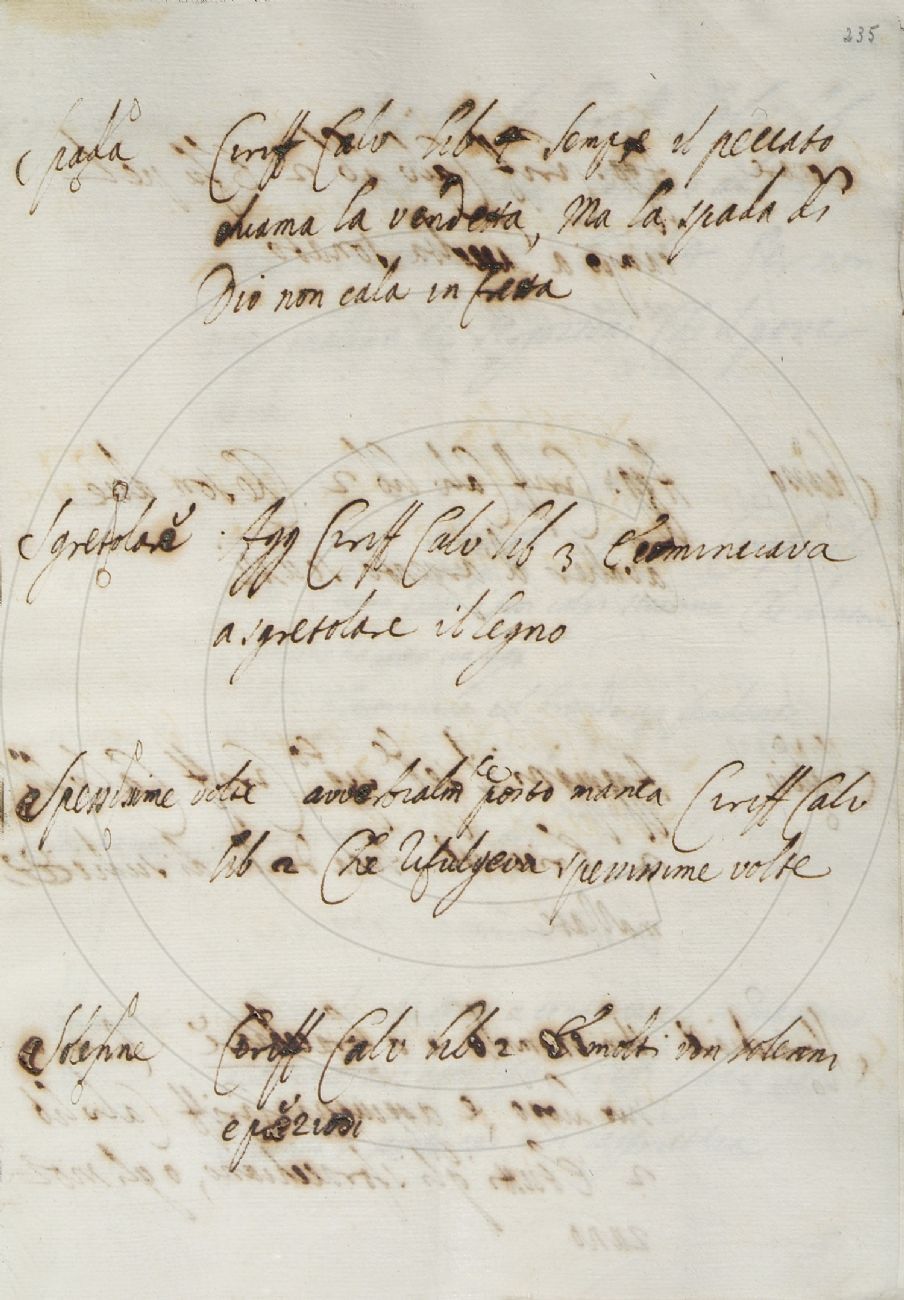 235
Spada Ciriff Calv lib 4 Sempre il peccato
chiama la vendetta, Ma la spada di
Dio non cala in fretta
Sgretolare Agg Ciriff Calv lib 3 E cominciava
a sgretolare il legno
Spessissime volte avverbialmte posto manca Ciriff Calv
lib 2 Che rifulgeva spessissime volte
Solenne Ciriff Calv lib 2 E molti vin solenni
e preziosi